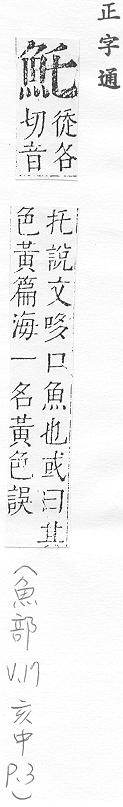 正字通
魠
徒各
切音
托說文哆口魚也或曰其
色黃篇海一名黃色誤
(魚部
V.17
亥中
P.3)